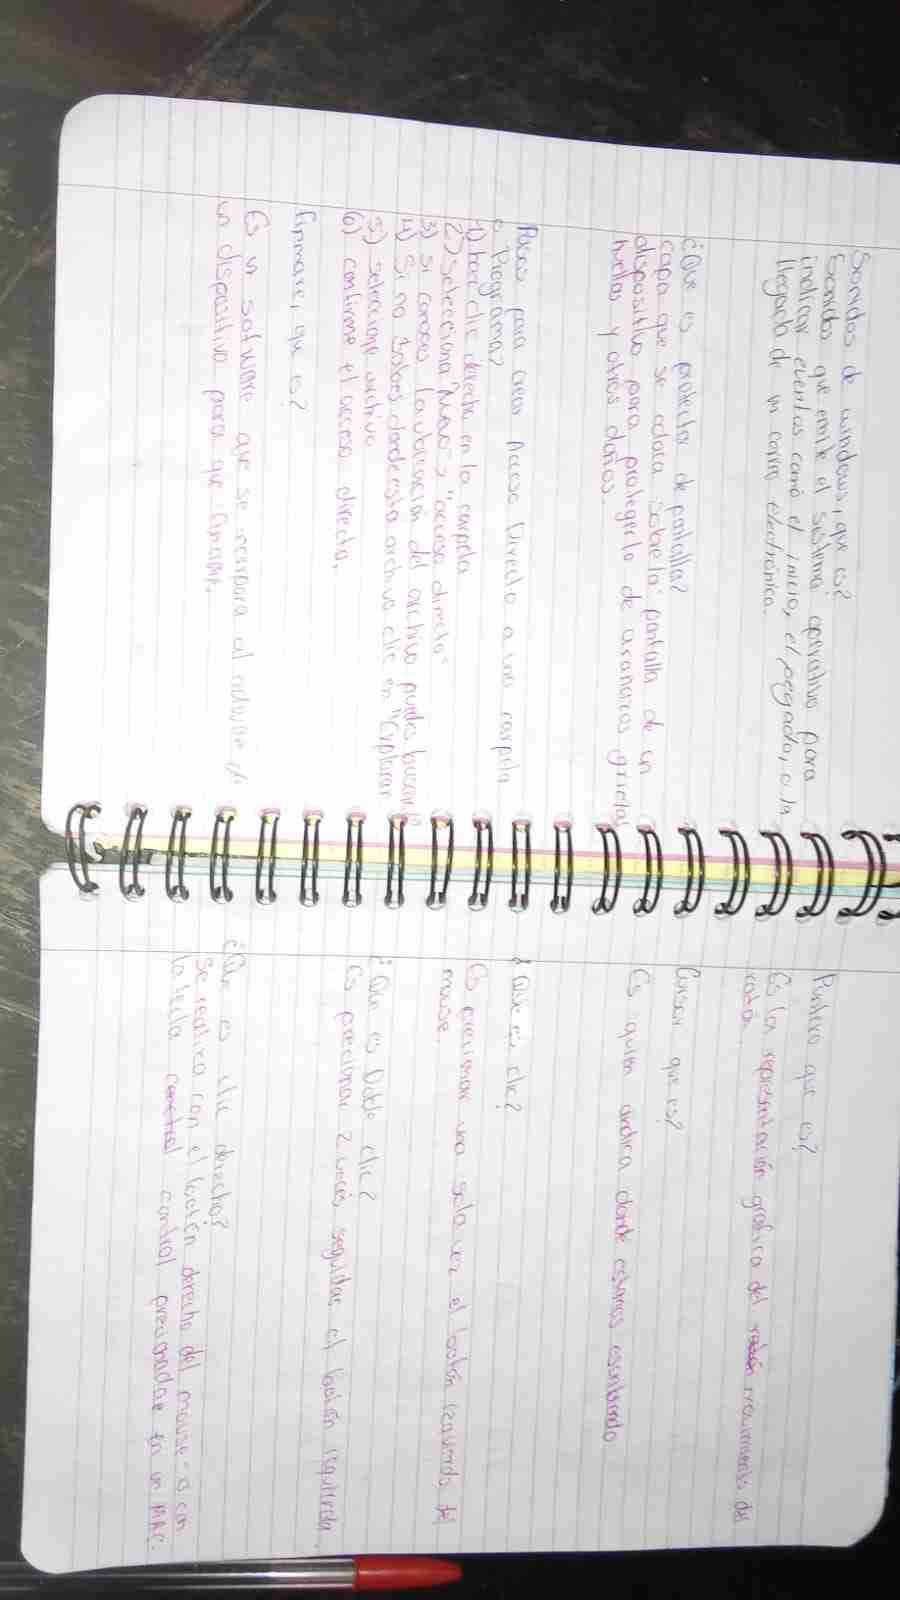 Sonidos de windows, que es?
Sonidos que emite el sistema operativo para
indicar eventos como el inicio, el pegado, o la
llegada de un correo electrónico.
¿Que es protecta de pantalla?
capa que se coloca sobre la pantalla de un
dispositivo para protegerlo de aranasos grietas
huellas y otros daños
Pasos para crear Acceso Directo a una carpeta
o Programa?
1) hace clic derecho en la carpeta
2) selecciona "Nuevo" -> "acceso directo"
3) si conoces la ubicación del archivo puedes buscarlo
4) Si no sabes donde esta archivo clic en "Explorar
5) seleccione archivo
6) confirme el acceso directo.
firmware, que es?
Es un software que se incorpora al hardware de
un dispositivo para que funcione.
Puntero que es?
Es la representación grafica del movimiento del
ratón.
Cursor que es?
Es quien indica donde estamos escribiendo
¿Que es clic?
Es precionar una sola vez el botón izquierdo del
mouse.
¿Que es Doble clic?
Es precionar 2 veces seguidas el botón izquierdo.
¿Que es clic derecho?
Se realiza con el botón derecho del mouse o con
la tecla control control precionadae en un MAC.